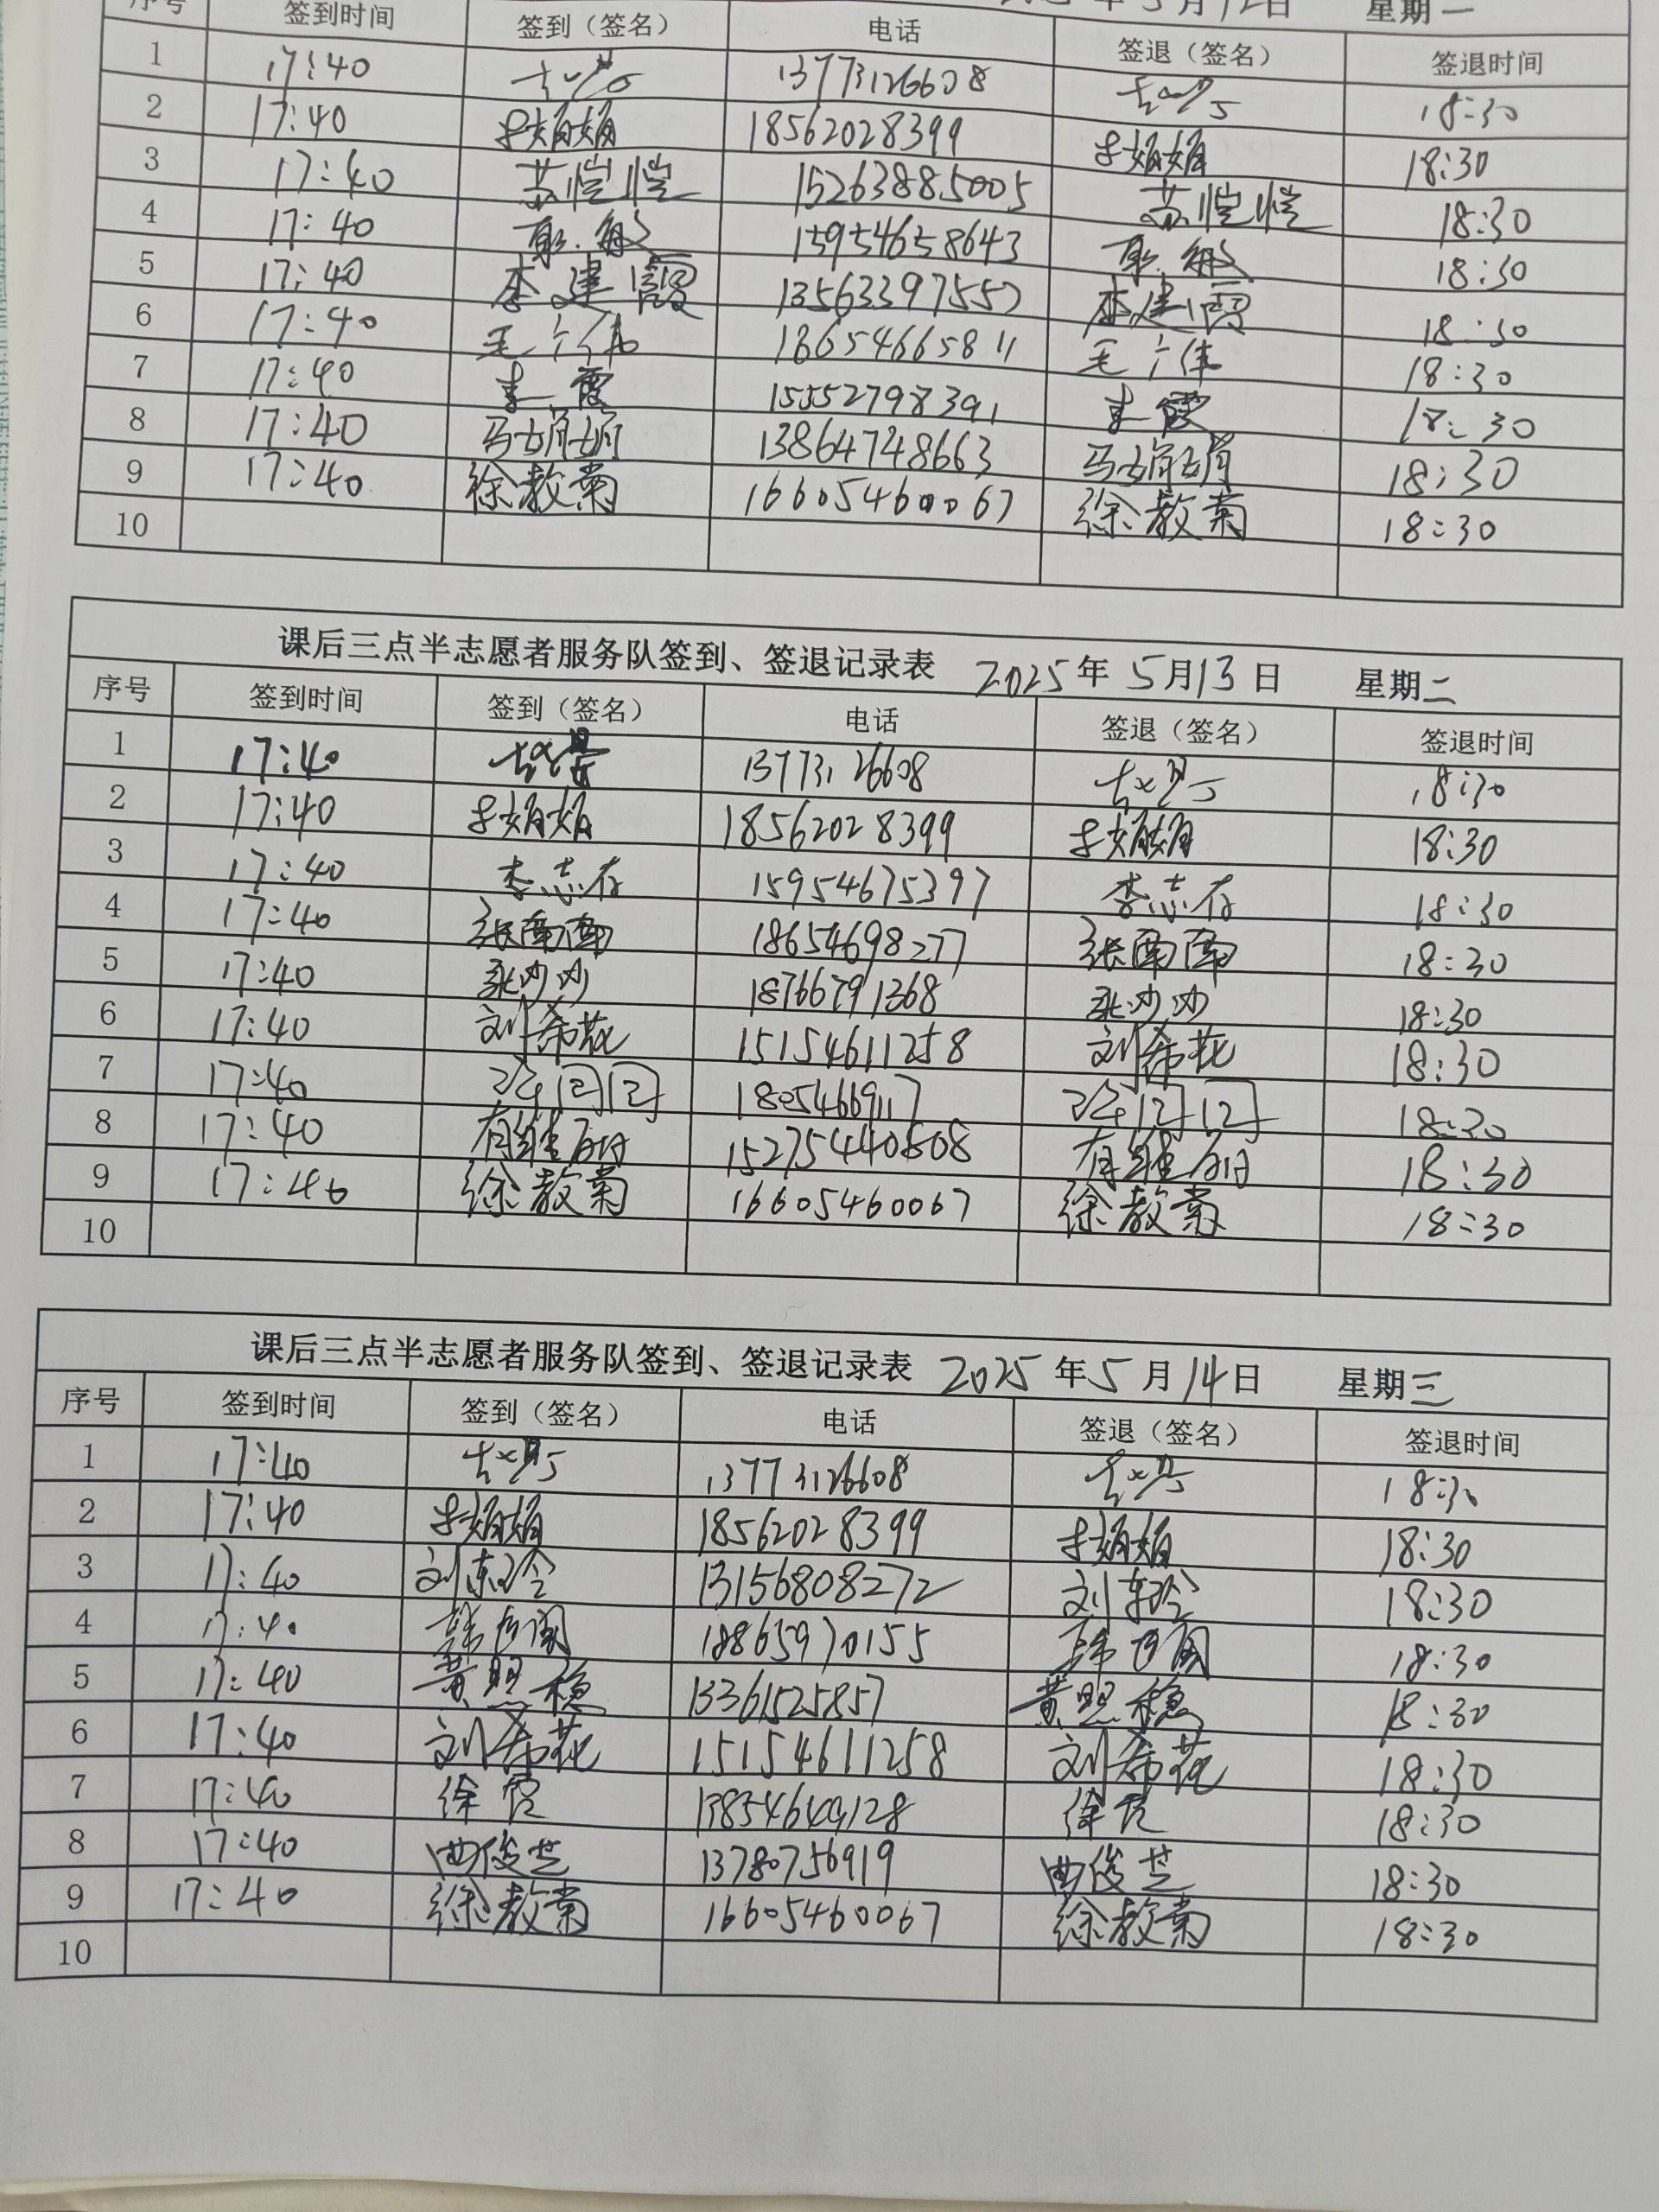 年5月12日 星期一
序号 签到时间 签到（签名） 电话 签退（签名） 签退时间
1 17:40 13773126608 18:30
2 17:40 娟娟 18562028399 娟娟 18:30
3 17:40 苏恺恺 15263885005 苏恺恺 18:30
4 17:40 敏 15954658643 敏 18:30
5 17:40 李建霞 13563397557 李建霞 18:30
6 17:40 毛 伟 18:30
7 17:40 霞 15552798391 霞 18:30
8 17:40 马娟娟 13864748663 马娟娟 18:30
9 17:40 徐教菊 16605460067 徐教菊 18:30
10
课后三点半志愿者服务队签到、签退记录表 2025年5月13日 星期二
序号 签到时间 签到（签名） 电话 签退（签名） 签退时间
1 17:40 13773126608 18:30
2 17:40 娟娟 18562028399 娟娟 18:30
3 17:40 李志存 15954675397 李志存 18:30
4 17:40 张南南 18654698277 张南南 18:30
5 17:40 沙沙 18766791368 沙沙 18:30
6 17:40 刘希花 15154611258 刘希花 18:30
7 17:40 18:30
8 17:40 维 维 18:30
9 17:40 徐教菊 16605460067 徐教菊 18:30
10
课后三点半志愿者服务队签到、签退记录表 2025年5月14日 星期三
序号 签到时间 签到（签名） 电话 签退（签名） 签退时间
1 17:40 13773126608 18:30
2 17:40 娟娟 18562028399 娟娟 18:30
3 17:40 刘东玲 13156808272 刘东玲 18:30
4 17:40 韩 18865970155 韩 18:30
5 17:40 黄照稳 13361525857 黄照稳 18:30
6 17:40 刘希花 15154611258 刘希花 18:30
7 17:40 徐霞 13854649128 徐霞 18:30
8 17:40 曲俊芝 13780756919 曲俊芝 18:30
9 17:40 徐教菊 16605460067 徐教菊 18:30
10